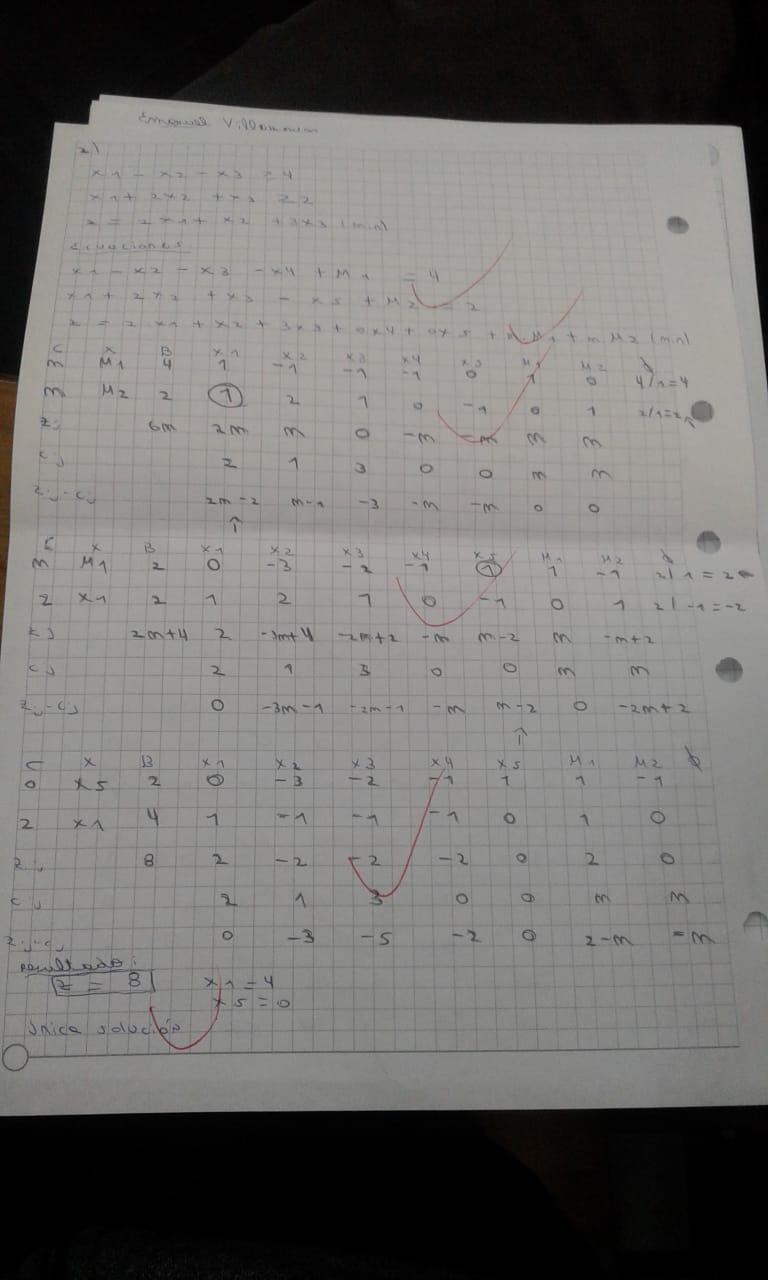 Emanuel
2)
x1 - x2 - x3 ≥ 4
x1 + 2x2 + x3 ≥ 2
z = 2x1 + x2 + 3x3 (min)
ecuaciones
x1 - x2 - x3 - x4 + M1 = 4
x1 + 2x2 + x3 - x5 + M2 = 2
z = 2x1 + x2 + 3x3 + 0x4 + 0x5 + mM1 + mM2 (min)
C x B x1 x2 x3 x4 x5 M1 M2
m M1 4 1 -1 -1 -1 0 1 0 4/1=4
m M2 2 1 2 1 0 -1 0 1 2/1=2
zj 6m 2m m 0 -m -m m m
cj 2 1 3 0 0 m m
zj-cj 2m-2 m-1 -3 -m -m 0 0
↑
C x B x1 x2 x3 x4 x5 M1 M2
m M1 2 0 -3 -2 -1 1 1 -1 2/1=2
2 x1 2 1 2 1 0 -1 0 1 2/-1=-2
zj 2m+4 2 -3m+4 -2m+2 -m m-2 m -m+2
cj 2 1 3 0 0 m m
zj-cj 0 -3m-1 -2m-1 -m m-2 0 -2m+2
↑
C x B x1 x2 x3 x4 x5 M1 M2
0 x5 2 0 -3 -2 -1 1 1 -1
2 x1 4 1 -1 -1 -1 0 1 0
zj 8 2 -2 -2 -2 0 2 0
cj 2 1 3 0 0 m m
zj-cj 0 -3 -5 -2 0 2-m =m
resultado:
z = 8 x1 = 4
x5 = 0
única solución